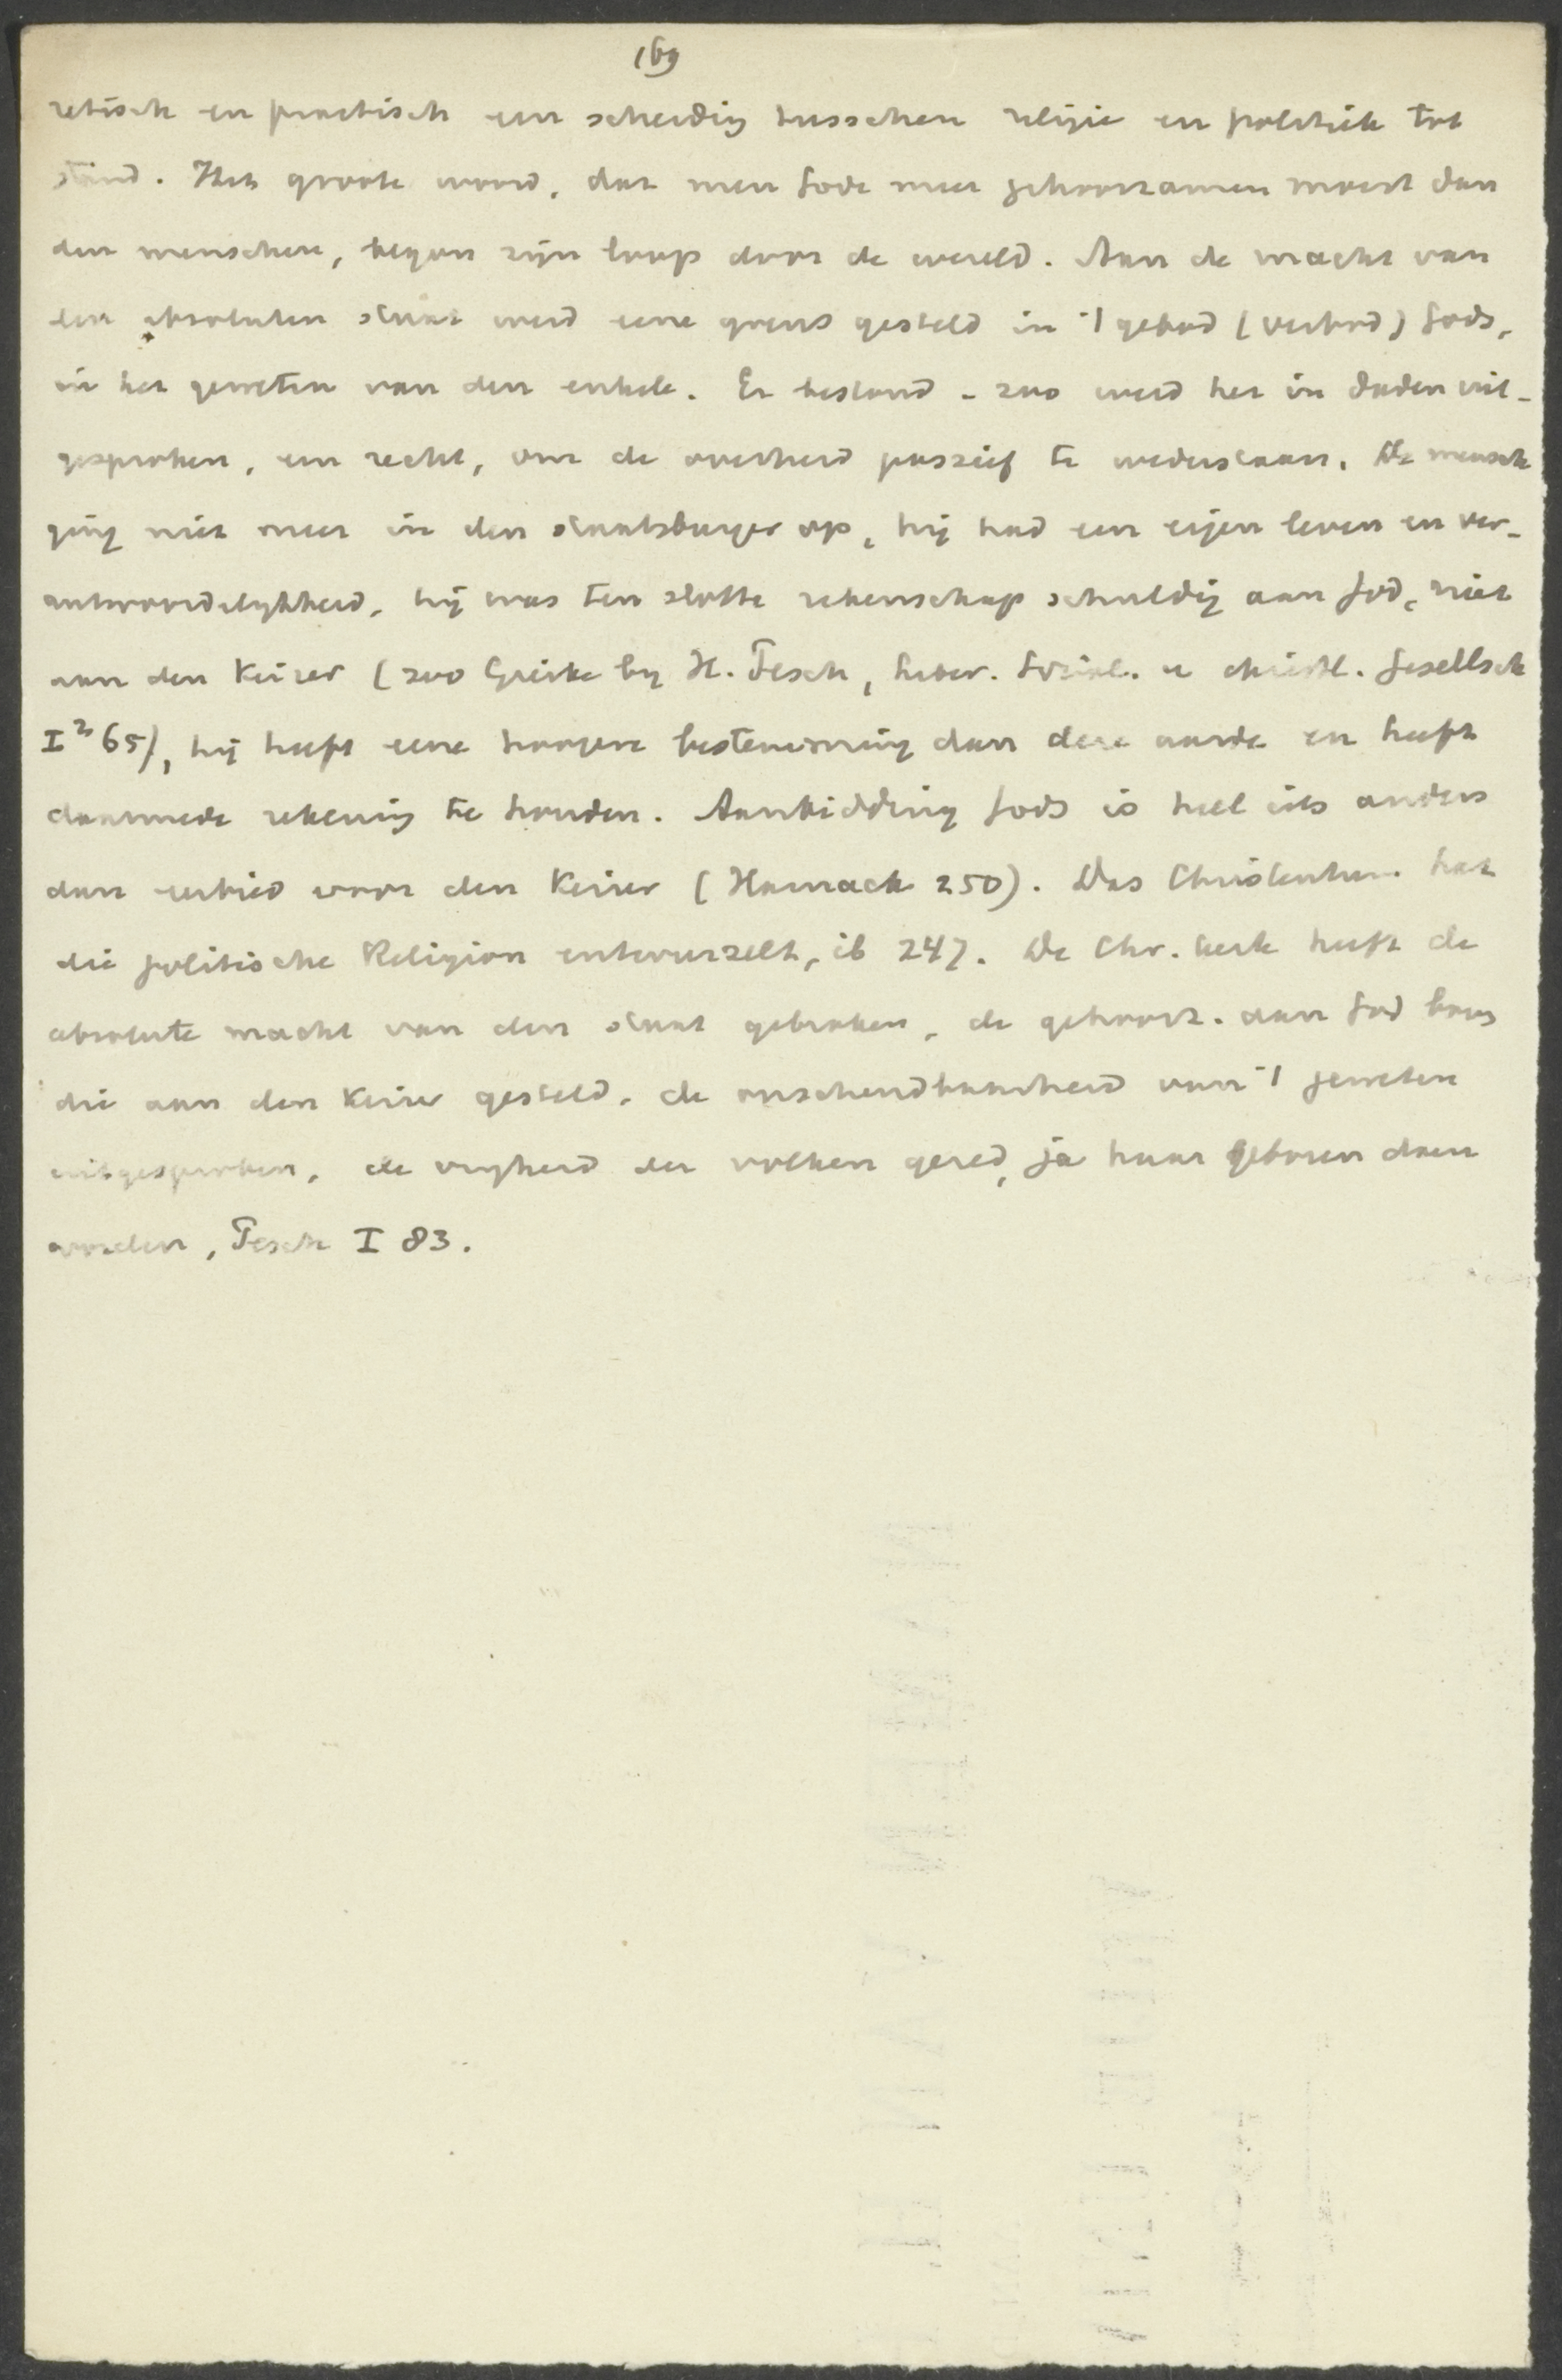 169
retisch en practisch een scheiding tusschen religie en politiek tot
stand. Het groote woord, dat men Gode meer gehoorzamen moest dan
den menschen, begon zijn loop door de wereld. Aan de macht van
den absoluten staat werd eene grens gesteld in 't gebod (verbod) Gods,
in het geweten van den enkele. Er bestond - zoo werd het in daden uit-
gesproken, een recht, om de overheid passief te wederstaan. De mensch
ging niet meer in den staatsburger op, hij had een eigen leven en ver-
antwoordelijkheid, hij was ten slotte rekenschap schuldig aan God, niet
aan den Keizer (zoo Gierke by H. Pesch, Liber. Sozial. u christl. Gesellsch
I² 65), hij heeft eene hoogere bestemming dan deze aarde en heeft
daarmede rekening te houden. Aanbidding Gods is heel iets anders
dan eerbied voor den Keizer (Harnack 250). Das Christentum hat
die politische Religion entwurzelt, ib 247. De Chr. kerk heeft de
absolute macht van den staat gebroken, de gehoorz. aan God boven
die aan den Keizer gesteld, de onschendbaarheid van 't geweten
uitgesproken, de vryheid der volken gered, ja haar geboren doen
worden, Pesch I 83.